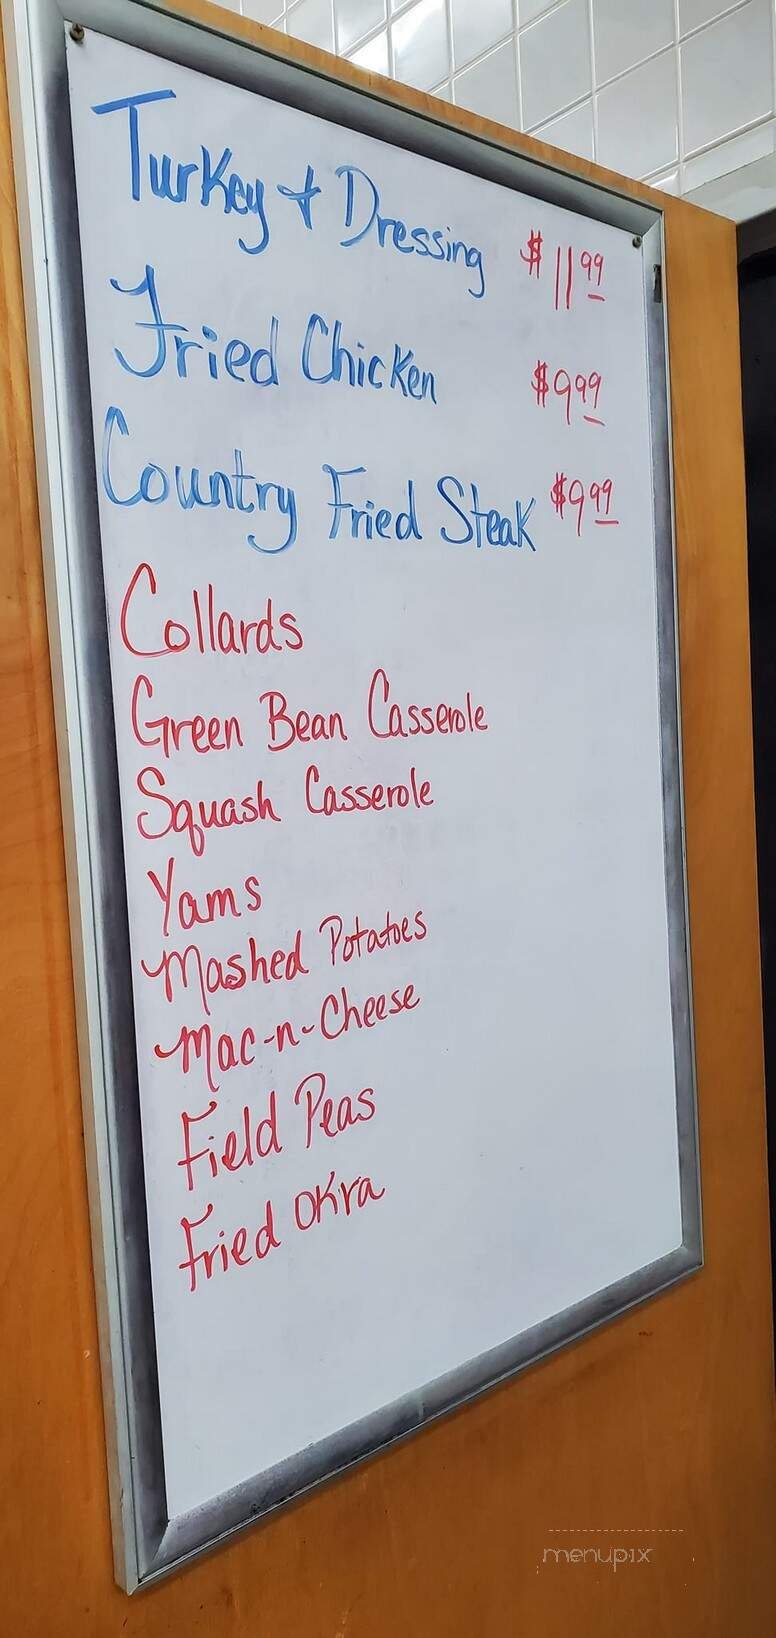 Turkey + Dressing $11.99
Fried Chicken $9.99
Country Fried Steak $9.99
Collards
Green Bean Casserole
Squash Casserole
Yams
Mashed Potatoes
Mac-n-Cheese
Field Peas
Fried Okra
menupix